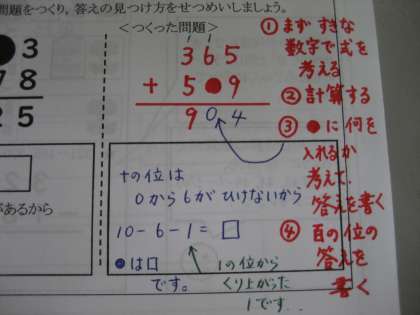 問題をつくり，答えの見つけ方をせつめいしましょう。
＜つくった問題＞
3
78
25
があるから
1 1
365
+ 5●9
904
十の位は
0から6が ひけないから
10-6-1=□
●は□
です。
1の位から
くり上がった
1です..
① まず すきな
数字で式を
考える
② 計算する
③ ●に何を
入れるか
考えて、
答えを書く
④ 百の位の
答えを
書く